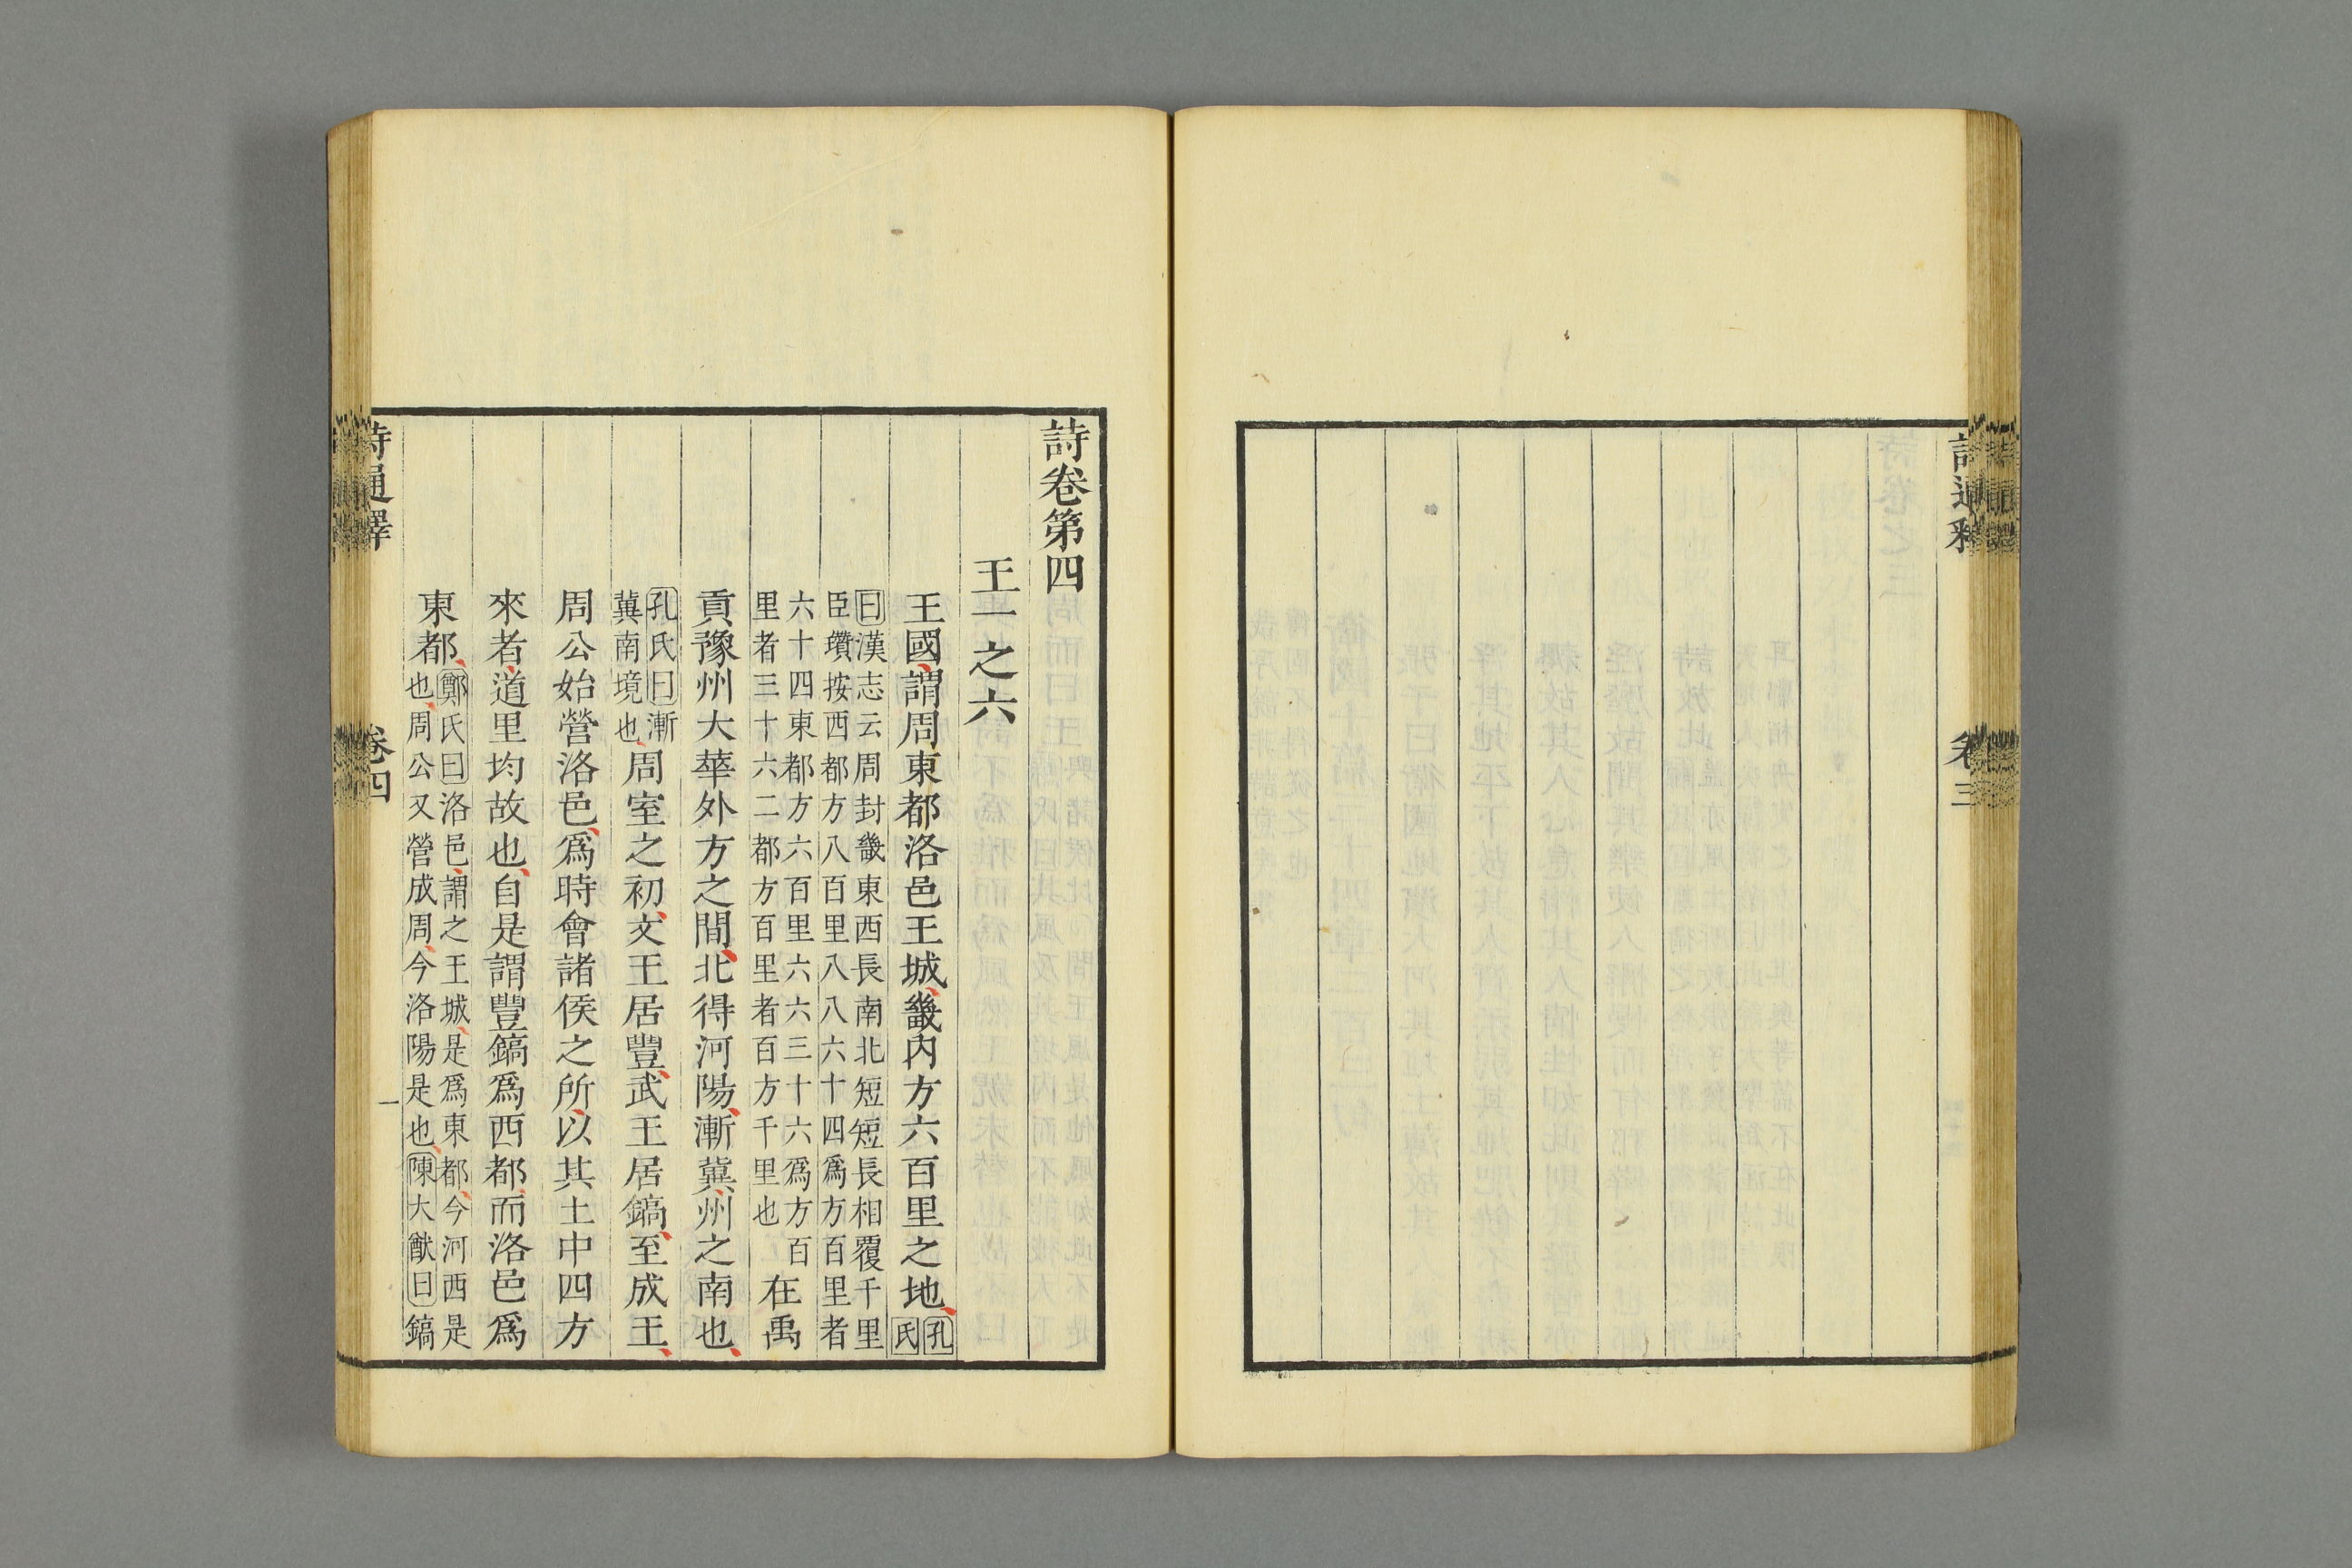 詩通釋
卷三
詩卷第四
王一之六
王國謂周東都洛邑王城畿內方六百里之地孔氏
曰漢志云周封畿東西長南北短短長相覆千里
臣瓚按西都方八百里八八六十四爲方百里者
六十四東都方六百里六六三十六爲方百
里者三十六二都方百里者百方千里也在禹
貢豫州大華外方之間北得河陽漸冀州之南也
孔氏曰漸冀南境也周室之初文王居豐武王居鎬至成王
周公始營洛邑爲時會諸侯之所以其土中四方
來者道里均故也自是謂豐鎬爲西都而洛邑爲
東都鄭氏曰洛邑謂之王城是爲東都今河西是
也周公又營成周今洛陽是也陳大猷曰鎬
詩通釋
卷四
一